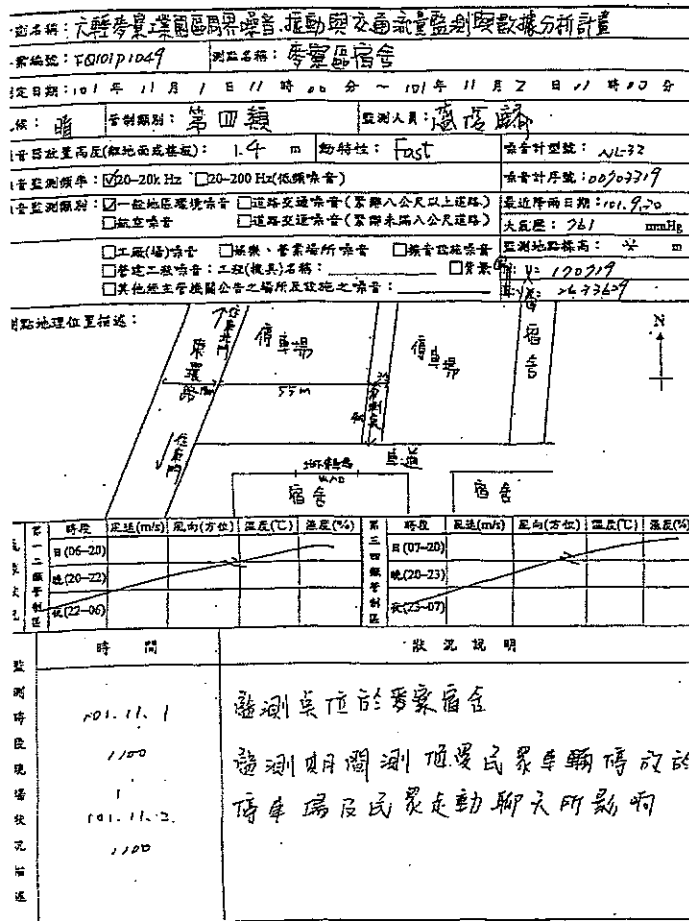 名稱：六輕麥寮工業園區周界噪音、振動與交通流量監測與數據分析計畫
編號：FQ101P1049 測點名稱：麥寮區宿舍
定日期：101 年 11 月 1 日 11 時 00 分 ~ 101 年 11 月 2 日 11 時 00 分
候：晴 管制類別：第四類 監測人員：
音器放置高度(離地面或樓板)：1.4 m 動特性：Fast 噪音計型號：NL-32
音監測頻率：☑20~20k Hz □20~200 Hz(低頻噪音) 噪音計序號：00903319
音監測類別：☑一般地區環境噪音 □道路交通噪音(緊鄰八公尺以上道路) 最近降雨日期：101.9.30
□航空噪音 □道路交通噪音(緊鄰未滿八公尺道路) 大氣壓：761 mmHg
□工廠(場)噪音 □娛樂、營業場所噪音 □擴音設施噪音 監測地點標高： m
□營建工程噪音：工程(機具)名稱： □背景
□其他經主管機關公告之場所及設施之噪音：
測點地理位置描述：
東環路
停車場
停車場
宿舍
N
55m
車道
宿舍
宿舍
第一二類管制區 時段 風速(m/s) 風向(方位) 溫度(℃) 濕度(%) 第三四類管制區 時段 風速(m/s) 風向(方位) 溫度(℃) 濕度(%)
日(06~20) 日(07~20)
晚(20~22) 晚(20~23)
夜(22~06) 夜(23~07)
時間 狀況說明
監測時段現場狀況描述
101.11.1 監測點位於麥寮宿舍
1100 監測期間測值受民眾車輛停放於
101.11.2 停車場及民眾走動聊天所影響
1100